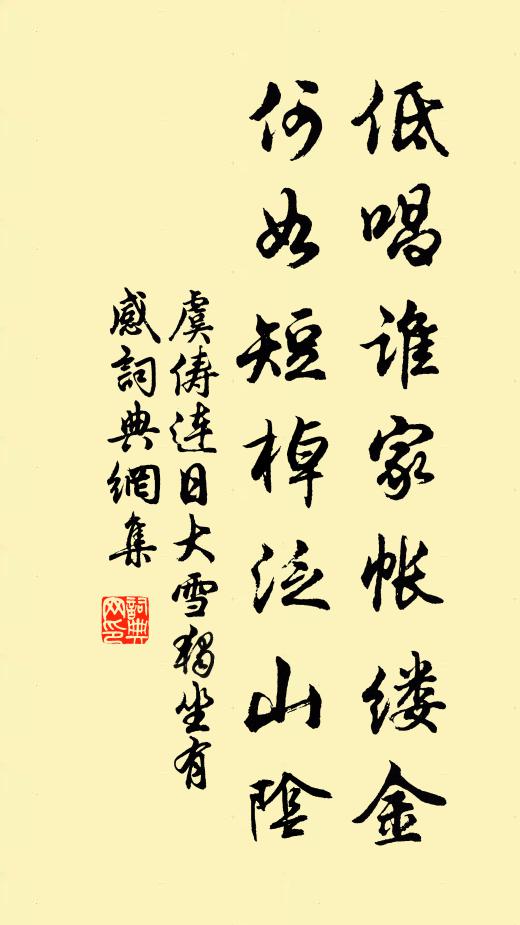 低唱谁家帐缕金
何如短棹泛山陰
虞俦連日大雪獨坐有
感詞典網集
詞典网印